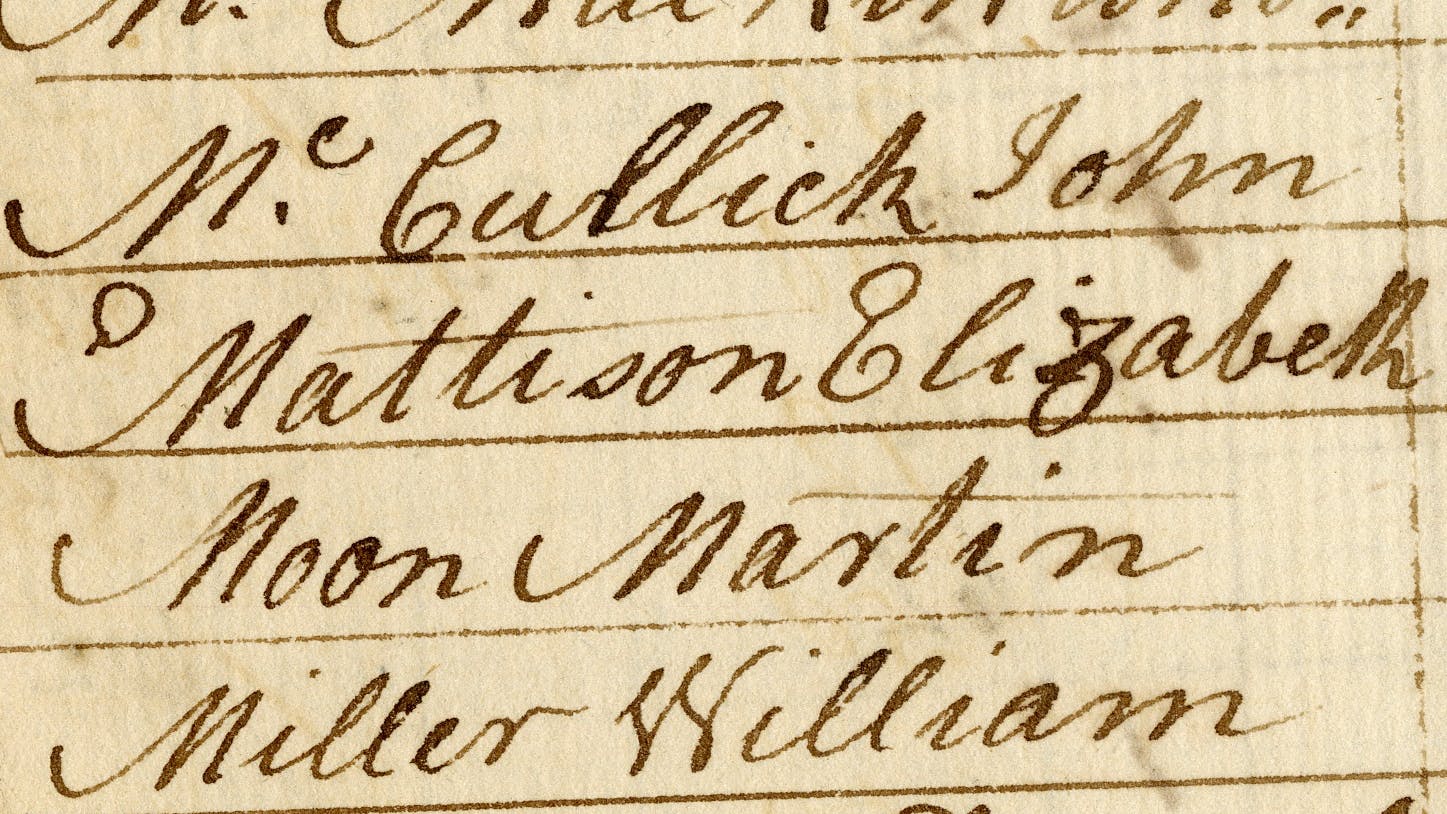 Mc. Cullick John
Mattison Elizabeth
Moon Martin
Miller William